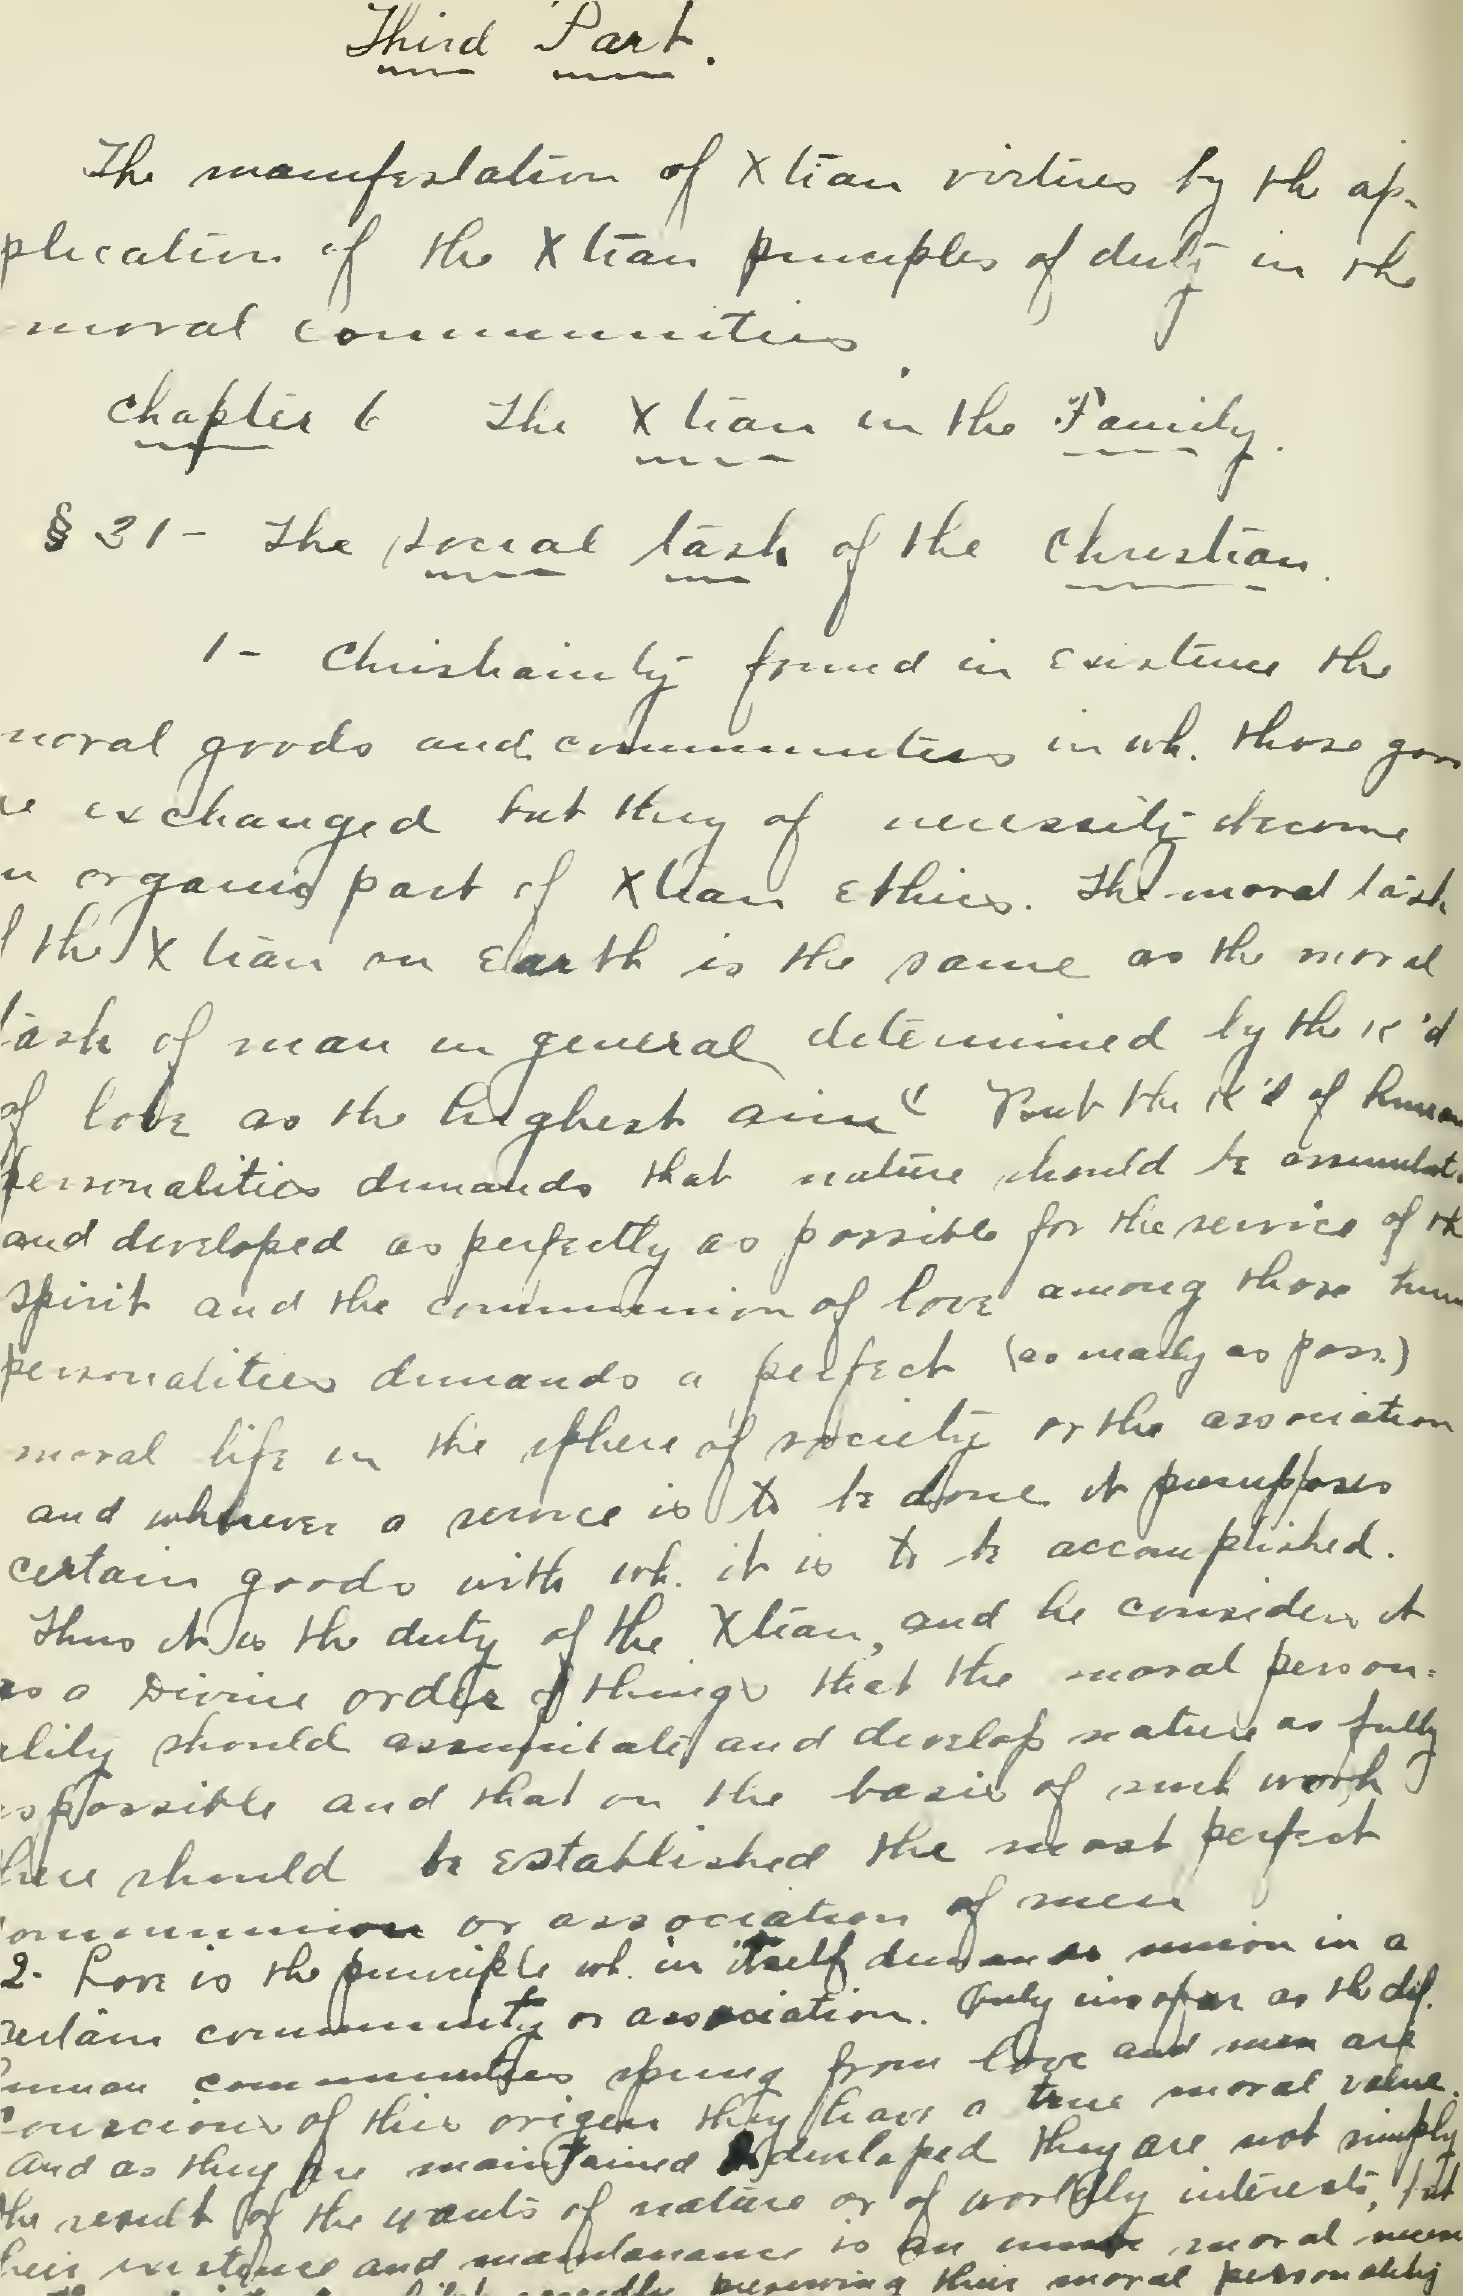 Third Part.
The manifestation of Xtian virtues by the ap-
plication of the Xtian principles of duty in the
moral communities.
Chapter 6 The Xtian in the Family.
§ 31- The social task of the Christian.
1- Christianity found in existence the
moral goods and communities in wh. those goo
re exchanged but they of necessity become
n organic part of Xtian ethics. The moral task
f the Xtian on Earth is the same as the moral
task of man in general determined by the K'd
of love as the highest aim" But the K'd of human
personalities demands that nature should be assimilat
and developed as perfectly as possible for the service of th
spirit and the communion of love among those hum
personalities demands a perfect (as nearly as poss.)
moral life in the sphere of society or the association
and wherever a service is to be done it presupposes
certain goods with wh. it is to be accomplished.
Thus it is the duty of the Xtian, and he considers it
as a Divine order of things that the moral person-
ality should assimilate and develop nature as fully
as possible and that on the basis of such work
there should be established the most perfect
communion or association of men
2- Love is the principle wh. in itself demands union in a
certain community or association. Only insofar as the dif.
human communities spring from love and men are
conscious of their origin they have a true moral value.
And as they are maintained & developed they are not simply
the result of the wants of nature or of worldly interests, but
their existence and maintenance is an moral
preserving their moral personality